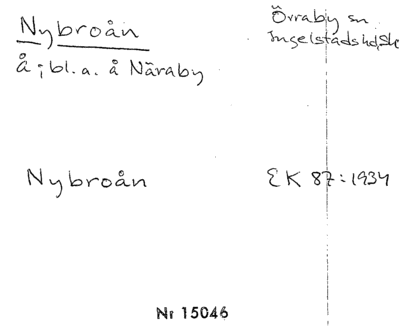 Nybroån
Övraby sn
Ingelstads hd, Sk
å; bl. a. å Näraby
Nybroån
EK 87:1934
Nr 15046